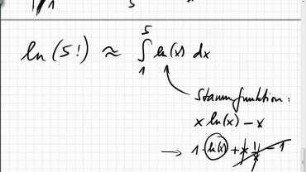 5
ln(5!) ≈ ∫₁⁵ ln(x) dx
Stammfunktion:
x ln(x) - x
→ 1·ln(x) + x·1/x - 1